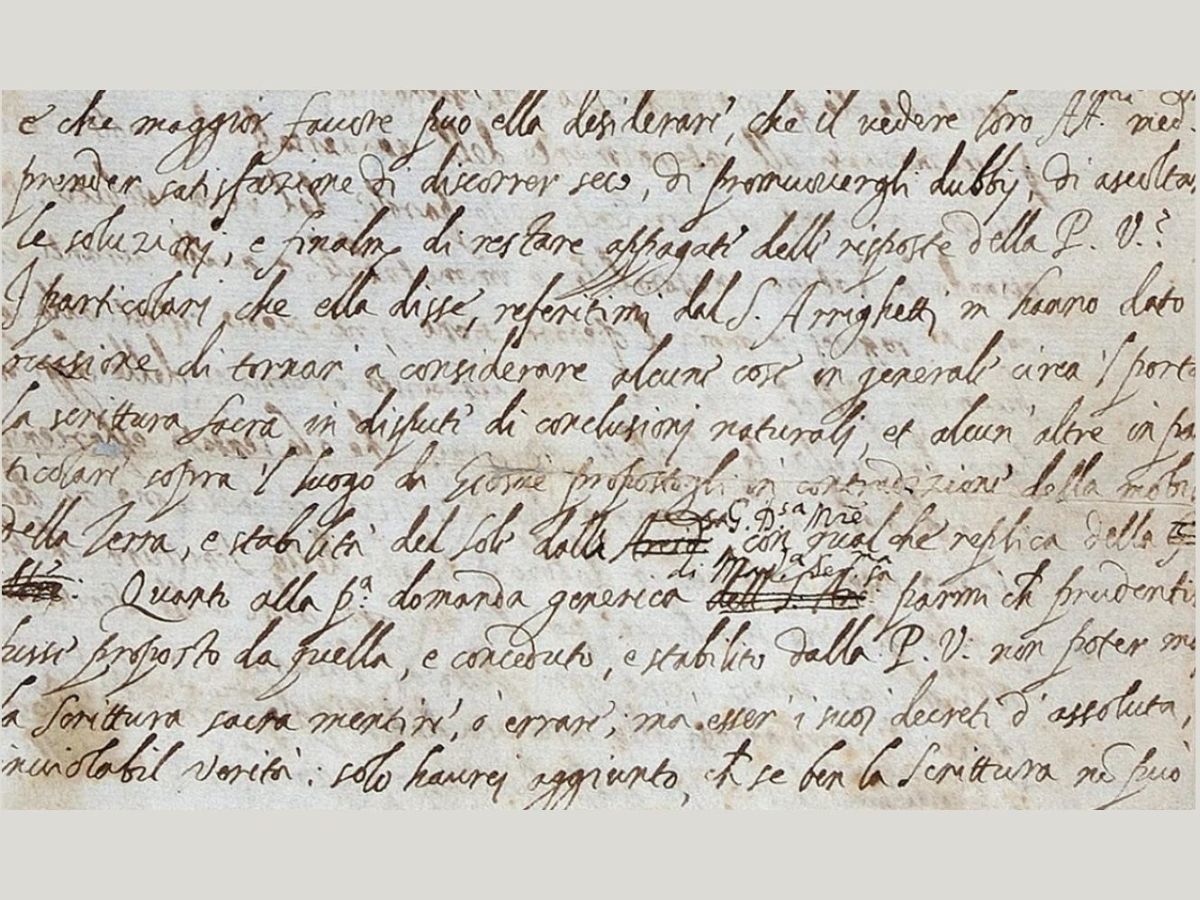 e che maggior favore può ella desiderare, che il vedere loro AA. med.
prender satisfazione di discorrer seco, di promuovergli dubbij, di ascolta
le soluzioni, e finalm. di restare appagate delle risposte della P. V.?
I particolari che ella disse, referitimi dal S. Arrighetti m' hanno dato
occasione di tornar à considerare alcune cose in generale circa 'l porta
la scrittura sacra in dispute di conclusioni naturali, et alcun' altre in pa
ticolare sopra 'l luogo di Giosuè propostogli in contradizione della mobi
della Terra, e stabilità del Sole dalla G. D.sa M.re con qualche replica della
di Mad.a Ser.ma
Quanto alla p.a domanda generica parmi ch prudenti
fusse proposto da quella, e conceduto, e stabilito dalla P. V. non poter m
la Scrittura sacra mentire, o errare; ma esser' i suoi decreti d' assoluta,
inviolabil verità: solo haurei aggiunto, ch se ben la Scrittura nō può